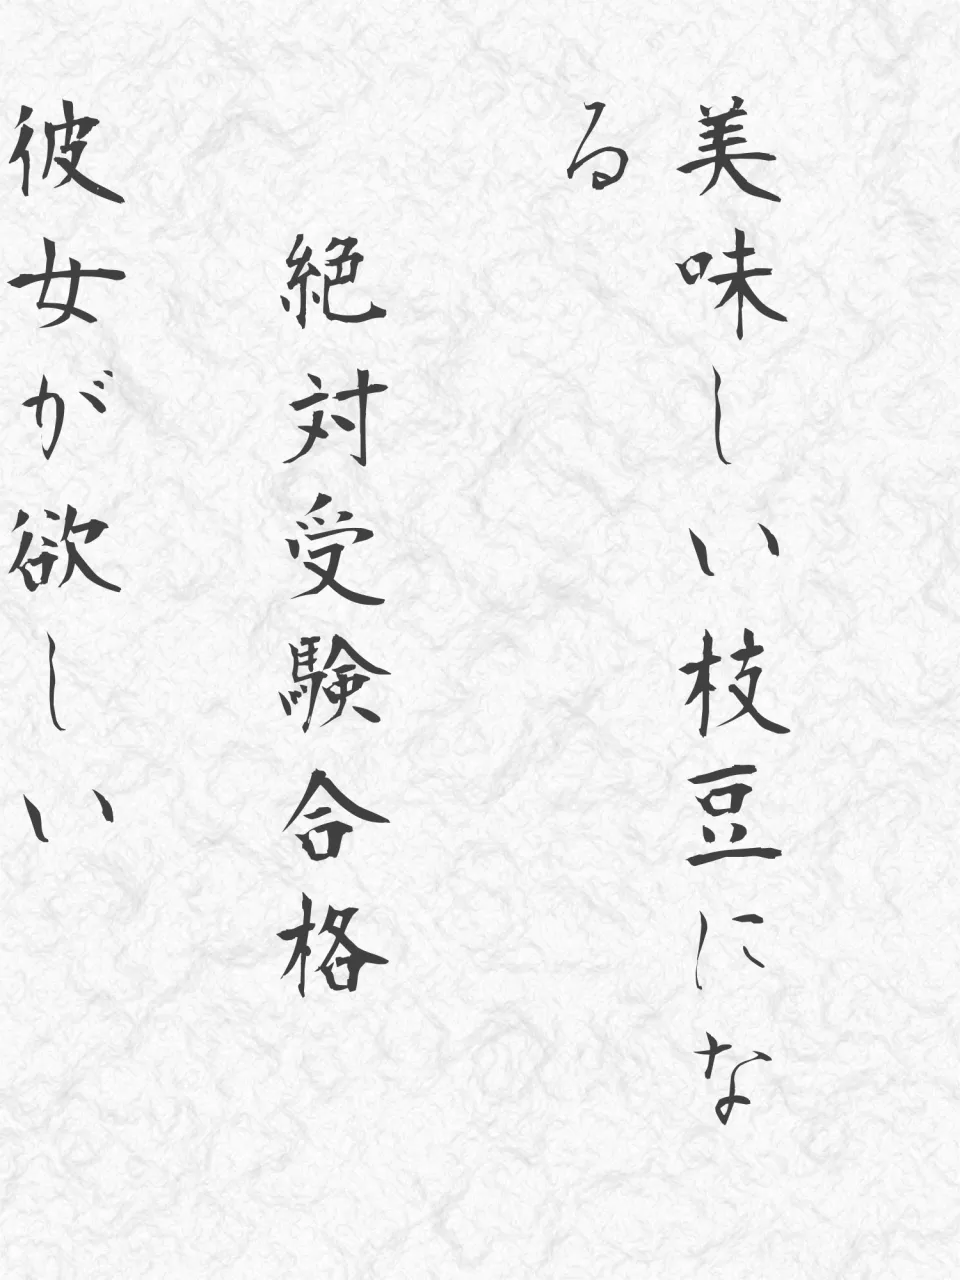 美味しい枝豆にな
る
絶対受験合格
彼女が欲しい